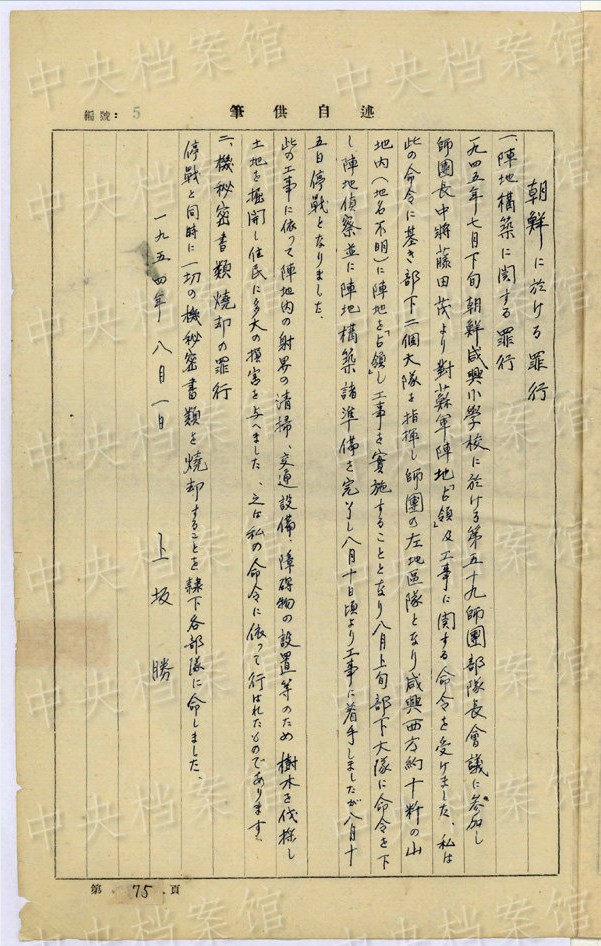 編號：5
述自供筆
朝鮮に於ける罪行
一、陣地構築に関する罪行
一九四五年七月下旬朝鮮咸興小学校に於ける第五十九師團部隊長會議に参加し
師團長中將藤田茂より對蘇軍陣地「占領」及工事に関する命令を受けました、私は
此の命令に基き部下二個大隊を指揮し師團の左地區隊となり咸興西方約十粁の山
地内（地名不明）に陣地を「占領」し工事を實施することとなり八月上旬部下大隊に命令を下
し陣地偵察並に陣地構築諸準備を完了し八月十日頃より工事に着手しましたが八月十
五日停戦となりました、
此の工事に依って陣地内の射界の清掃、交通設備、障碍物の設置等のため樹木を伐採し
土地を掘開し住民に多大の損害を与へました、之は私の命令に依って行はれたものであります、
二、機秘密書類焼却の罪行
停戦と同時に一切の機秘密書類を焼却することを隷下各部隊に命しました、
一九五四年八月一日
上坂勝
第 75 頁
中央档案馆